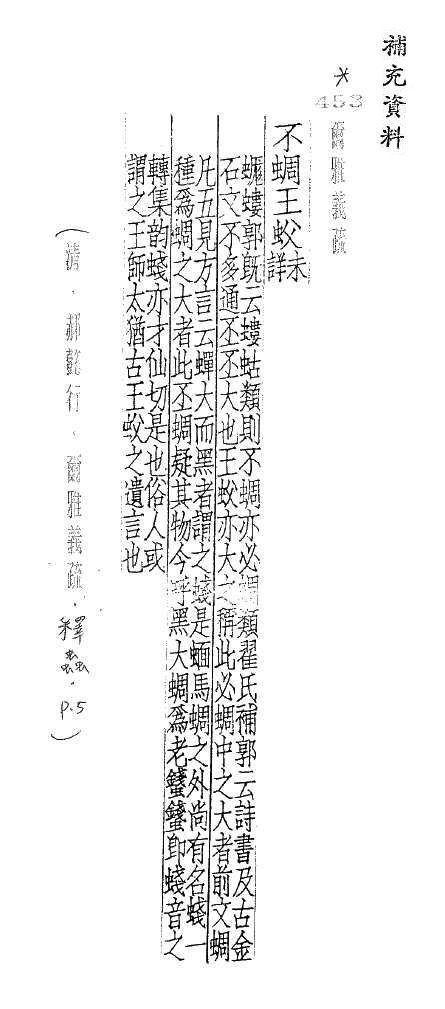 補充資料
* 453
爾雅義疏
不蜩王蚥未詳
蛖螻郭既云螻蛄類則不蜩亦必蜩類翟氏補郭云詩書及古金
石文不多通丕丕大也王蚥亦大之稱此必蜩中之大者前文蜩
凡五見方言云蟬大而黑者謂之䗃是蝒馬蜩之外尚有名䗃一
種爲蜩之大者此丕蜩疑其物今呼黑大蜩爲老蠽蠽卽䗃音之
轉集韵䗃亦才仙切是也俗人或
謂之王師太猶古王蚥之遺言也
(清、郝懿行、爾雅義疏.釋蟲.p.5)